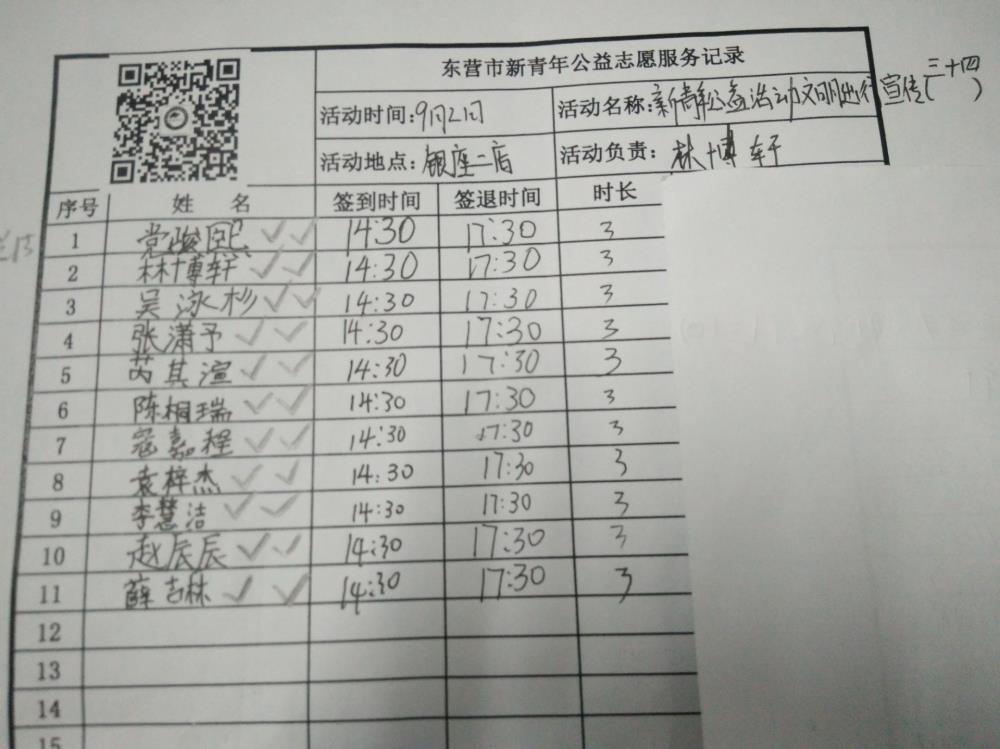 东营市新青年公益志愿服务记录
活动时间:9月2日 活动名称:新青年公益活动文明出行宣传(三十四)
活动地点:银座二店 活动负责:林博轩
序号 姓 名 签到时间 签退时间 时长
1 党骏熙 ✓✓ 14:30 17:30 3
2 林博轩 ✓✓ 14:30 17:30 3
3 吴泳杉 ✓✓ 14:30 17:30 3
4 张潇予 ✓✓ 14:30 17:30 3
5 芮其渲 ✓✓ 14:30 17:30 3
6 陈桐瑞 ✓✓ 14:30 17:30 3
7 寇嘉程 ✓✓ 14:30 17:30 3
8 袁梓杰 ✓✓ 14:30 17:30 3
9 李慧洁 ✓✓ 14:30 17:30 3
10 赵辰辰 ✓✓ 14:30 17:30 3
11 薛吉林 ✓✓ 14:30 17:30 3
12
13
14
15